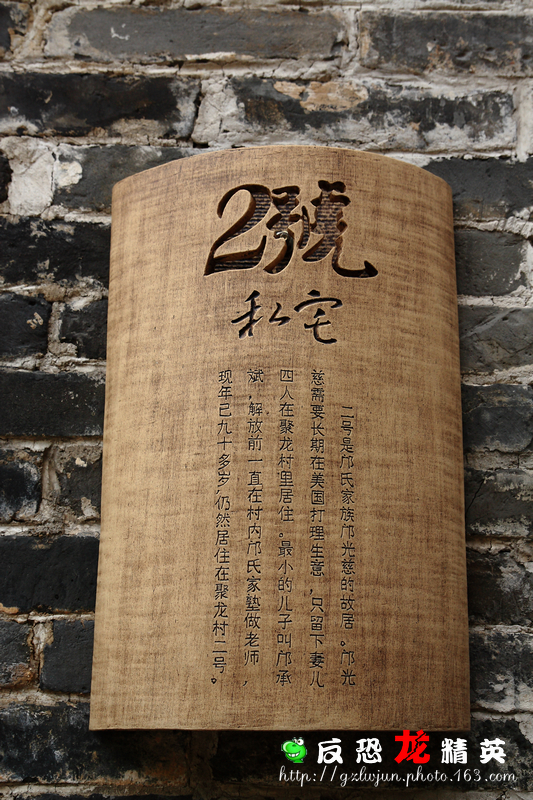 2號
私宅
二号是邝氏家族邝光慈的故居。邝光
慈需要长期在美国打理生意，只留下妻儿
四人在聚龙村里居住。最小的儿子叫邝承
斌，解放前一直在村内邝氏家塾做老师，
现年已九十多岁，仍然居住在聚龙村二号。
反恐龙精英
http://gzlwjun.photo.163.com